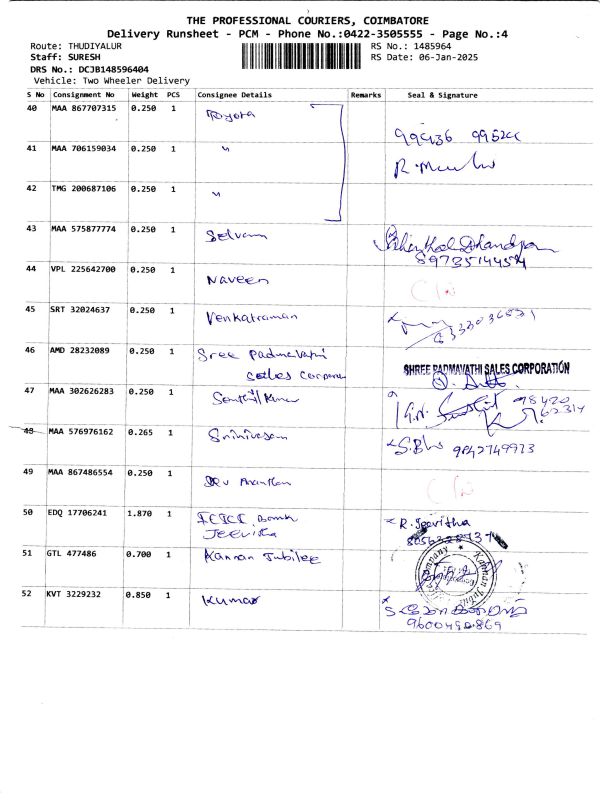 THE PROFESSIONAL COURIERS, COIMBATORE
Delivery Runsheet - PCM - Phone No.:0422-3505555 - Page No.:4
Route: THUDIYALUR RS No.: 1485964
Staff: SURESH RS Date: 06-Jan-2025
DRS No.: DCJB148596404
Vehicle: Two Wheeler Delivery
S No Consignment No Weight PCS Consignee Details Remarks Seal & Signature
40 MAA 867707315 0.250 1 Toyota
41 MAA 706159034 0.250 1 "
42 TMG 200687106 0.250 1 "
43 MAA 575877774 0.250 1 Selvam
8973514454
44 VPL 225642700 0.250 1 Naveen
45 SRT 32024637 0.250 1 Venkatraman
46 AMD 28232089 0.250 1 Sree Padmavathi
SHREE PADMAVATHI SALES CORPORATION
47 MAA 302626283 0.250 1
48 MAA 576976162 0.265 1 Srinivasan
9842749973
49 MAA 867486554 0.250 1
50 EDQ 17706241 1.870 1 ICICI Bank R. Jeevitha
Jeevitha
51 GTL 477486 0.700 1 Kannan Jubilee
52 KVT 3229232 0.850 1 Kumar